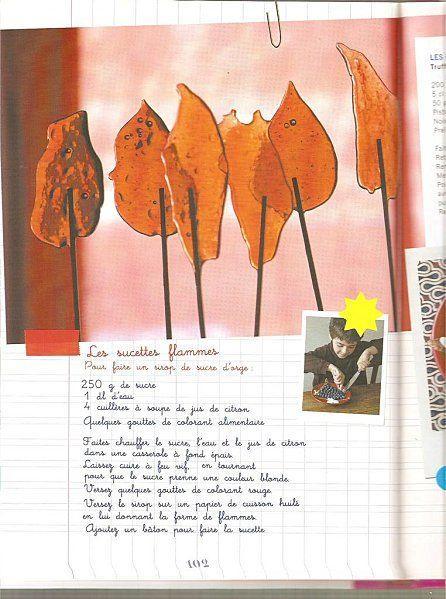 Les sucettes flammes
Pour faire un sirop de sucre d'orge :
250 g de sucre
1 dl d'eau
4 cuillères à soupe de jus de citron
Quelques gouttes de colorant alimentaire
Faites chauffer le sucre, l'eau et le jus de citron
dans une casserole à fond épais.
Laissez cuire à feu vif, en tournant
pour que le sucre prenne une couleur blonde.
Versez quelques gouttes de colorant rouge.
Versez le sirop sur un papier de cuisson huilé
en lui donnant la forme de flammes.
Ajoutez un bâton pour faire la sucette.
102
LES
Truff
200
5 cl
50